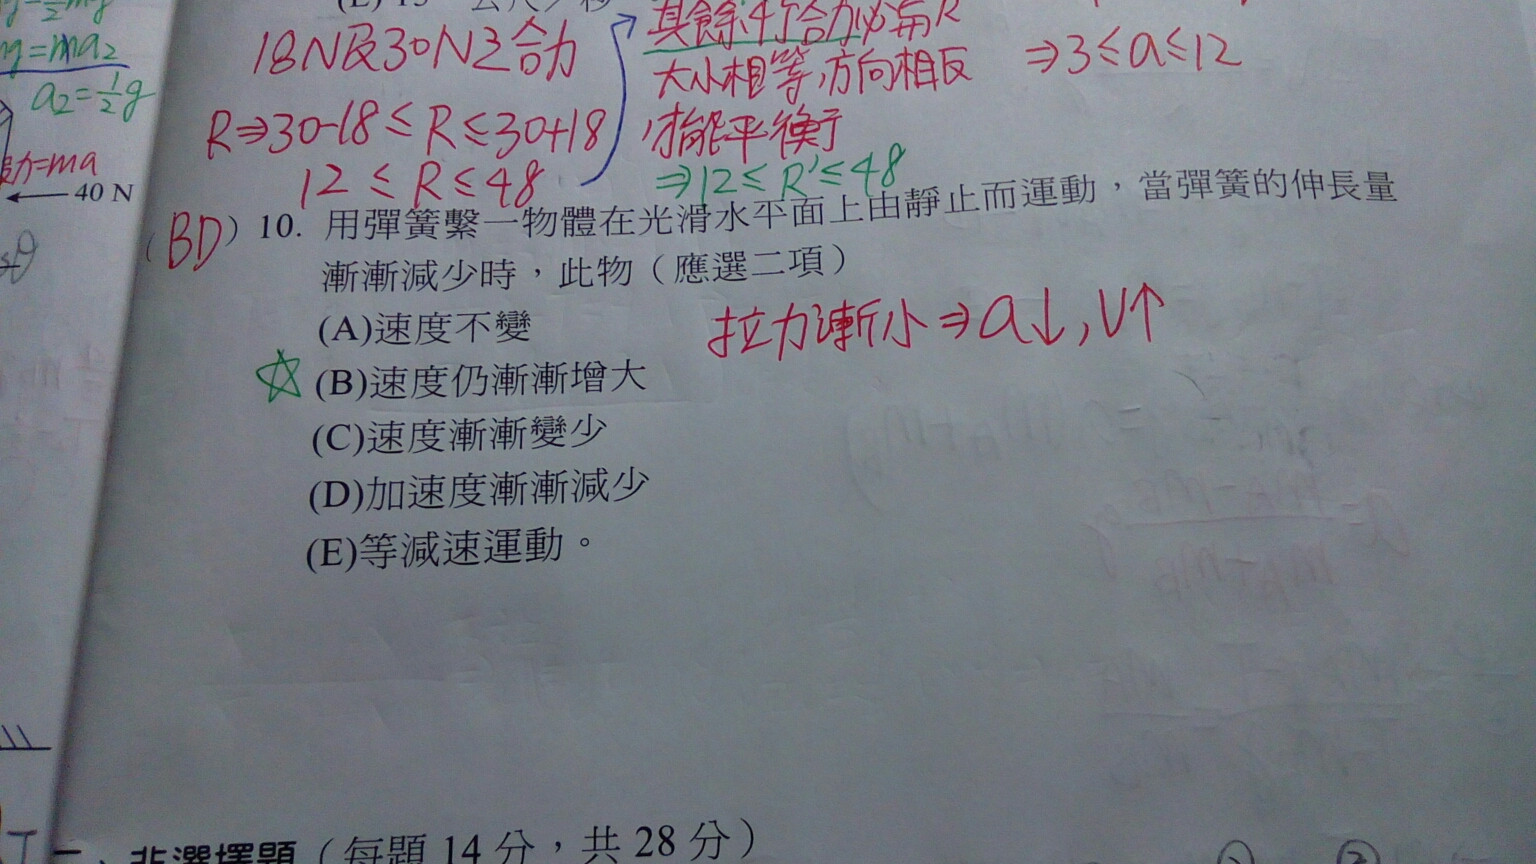 mg=ma₂
a₂=½g
力=ma
40 N
18N及30N之合力
R⇒30-18≤R≤30+18
12≤R≤48
其餘4個合力必為R
大小相等,方向相反
才能平衡
⇒12≤R'≤48
⇒3≤a≤12
(BD) 10. 用彈簧繫一物體在光滑水平面上由靜止而運動,當彈簧的伸長量
漸漸減少時,此物(應選二項)
(A)速度不變
拉力漸小⇒a↓,V↑
☆(B)速度仍漸漸增大
(C)速度漸漸變少
(D)加速度漸漸減少
(E)等減速運動。
二、非選擇題(每題 14 分,共 28 分)